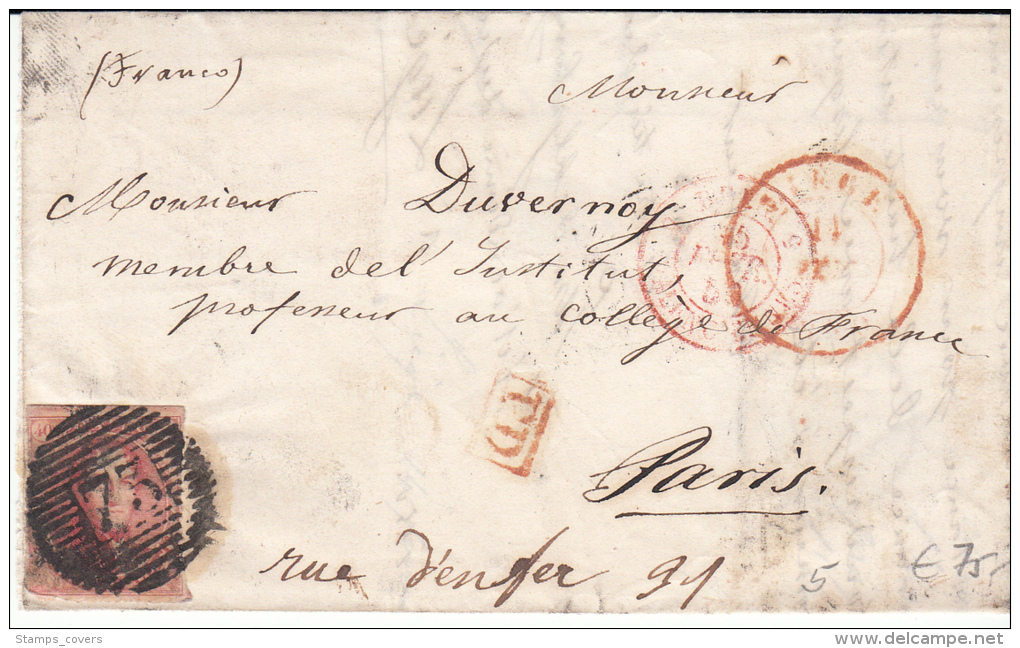 (Franco)
Monsieur
Monsieur Duvernoy
membre de l'Institut,
professeur au collège de France
PD
Paris.
rue d'enfer 91
5
€ 75,-
40
Stamps_covers
www.delcampe.net